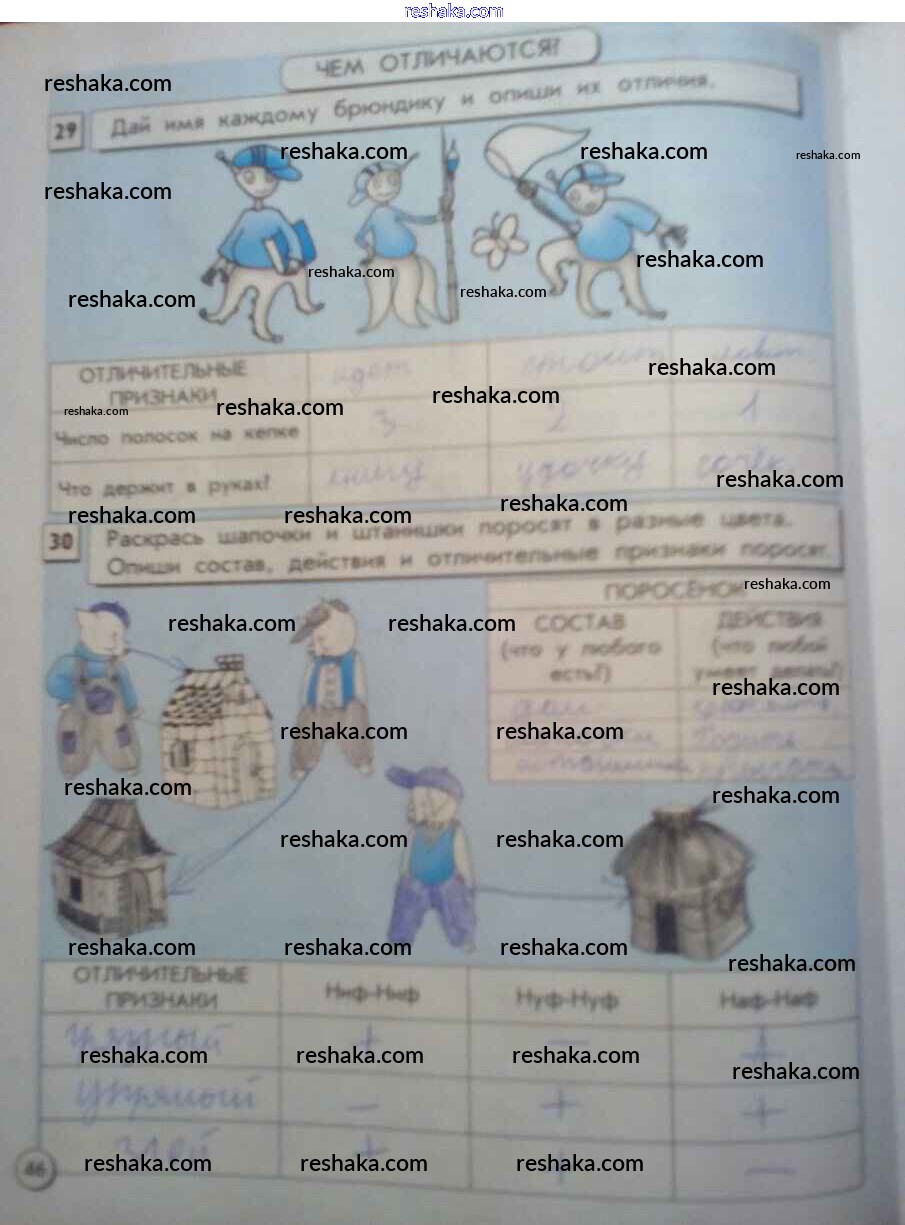 reshaka.com
ЧЕМ ОТЛИЧАЮТСЯ?
reshaka.com
29 Дай имя каждому брюндику и опиши их отличия.
reshaka.com reshaka.com reshaka.com
reshaka.com
reshaka.com
reshaka.com
reshaka.com
reshaka.com
ОТЛИЧИТЕЛЬНЫЕ ПРИЗНАКИ идет стоит
reshaka.com
reshaka.com
reshaka.com reshaka.com
Число полосок на кепке 3 2 1
Что держит в руках? книгу удочку сачок
reshaka.com
reshaka.com
reshaka.com reshaka.com
30 Раскрась шапочки и штанишки поросят в разные цвета.
Опиши состав, действия и отличительные признаки поросят.
ПОРОСЁНОК
reshaka.com
reshaka.com reshaka.com
СОСТАВ ДЕЙСТВИЯ
(что у любого (что любой
есть?) умеет делать?)
reshaka.com
reshaka.com reshaka.com
ходить
reshaka.com
reshaka.com
reshaka.com reshaka.com
reshaka.com reshaka.com reshaka.com
reshaka.com
ОТЛИЧИТЕЛЬНЫЕ
ПРИЗНАКИ Ниф-Ниф Нуф-Нуф Наф-Наф
грязный + — +
reshaka.com reshaka.com reshaka.com
reshaka.com
упрямый — + +
злой + + —
46 reshaka.com reshaka.com reshaka.com